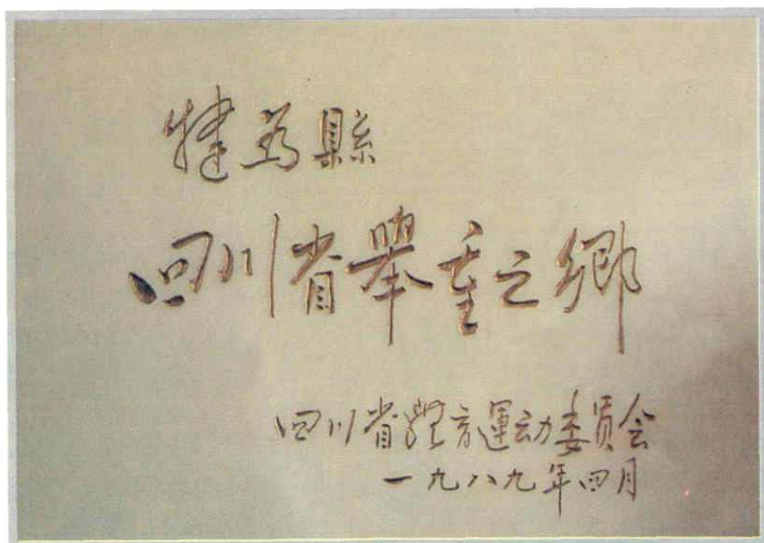 犍为縣
四川省舉重之鄉
四川省體育運动委员会
一九八九年四月